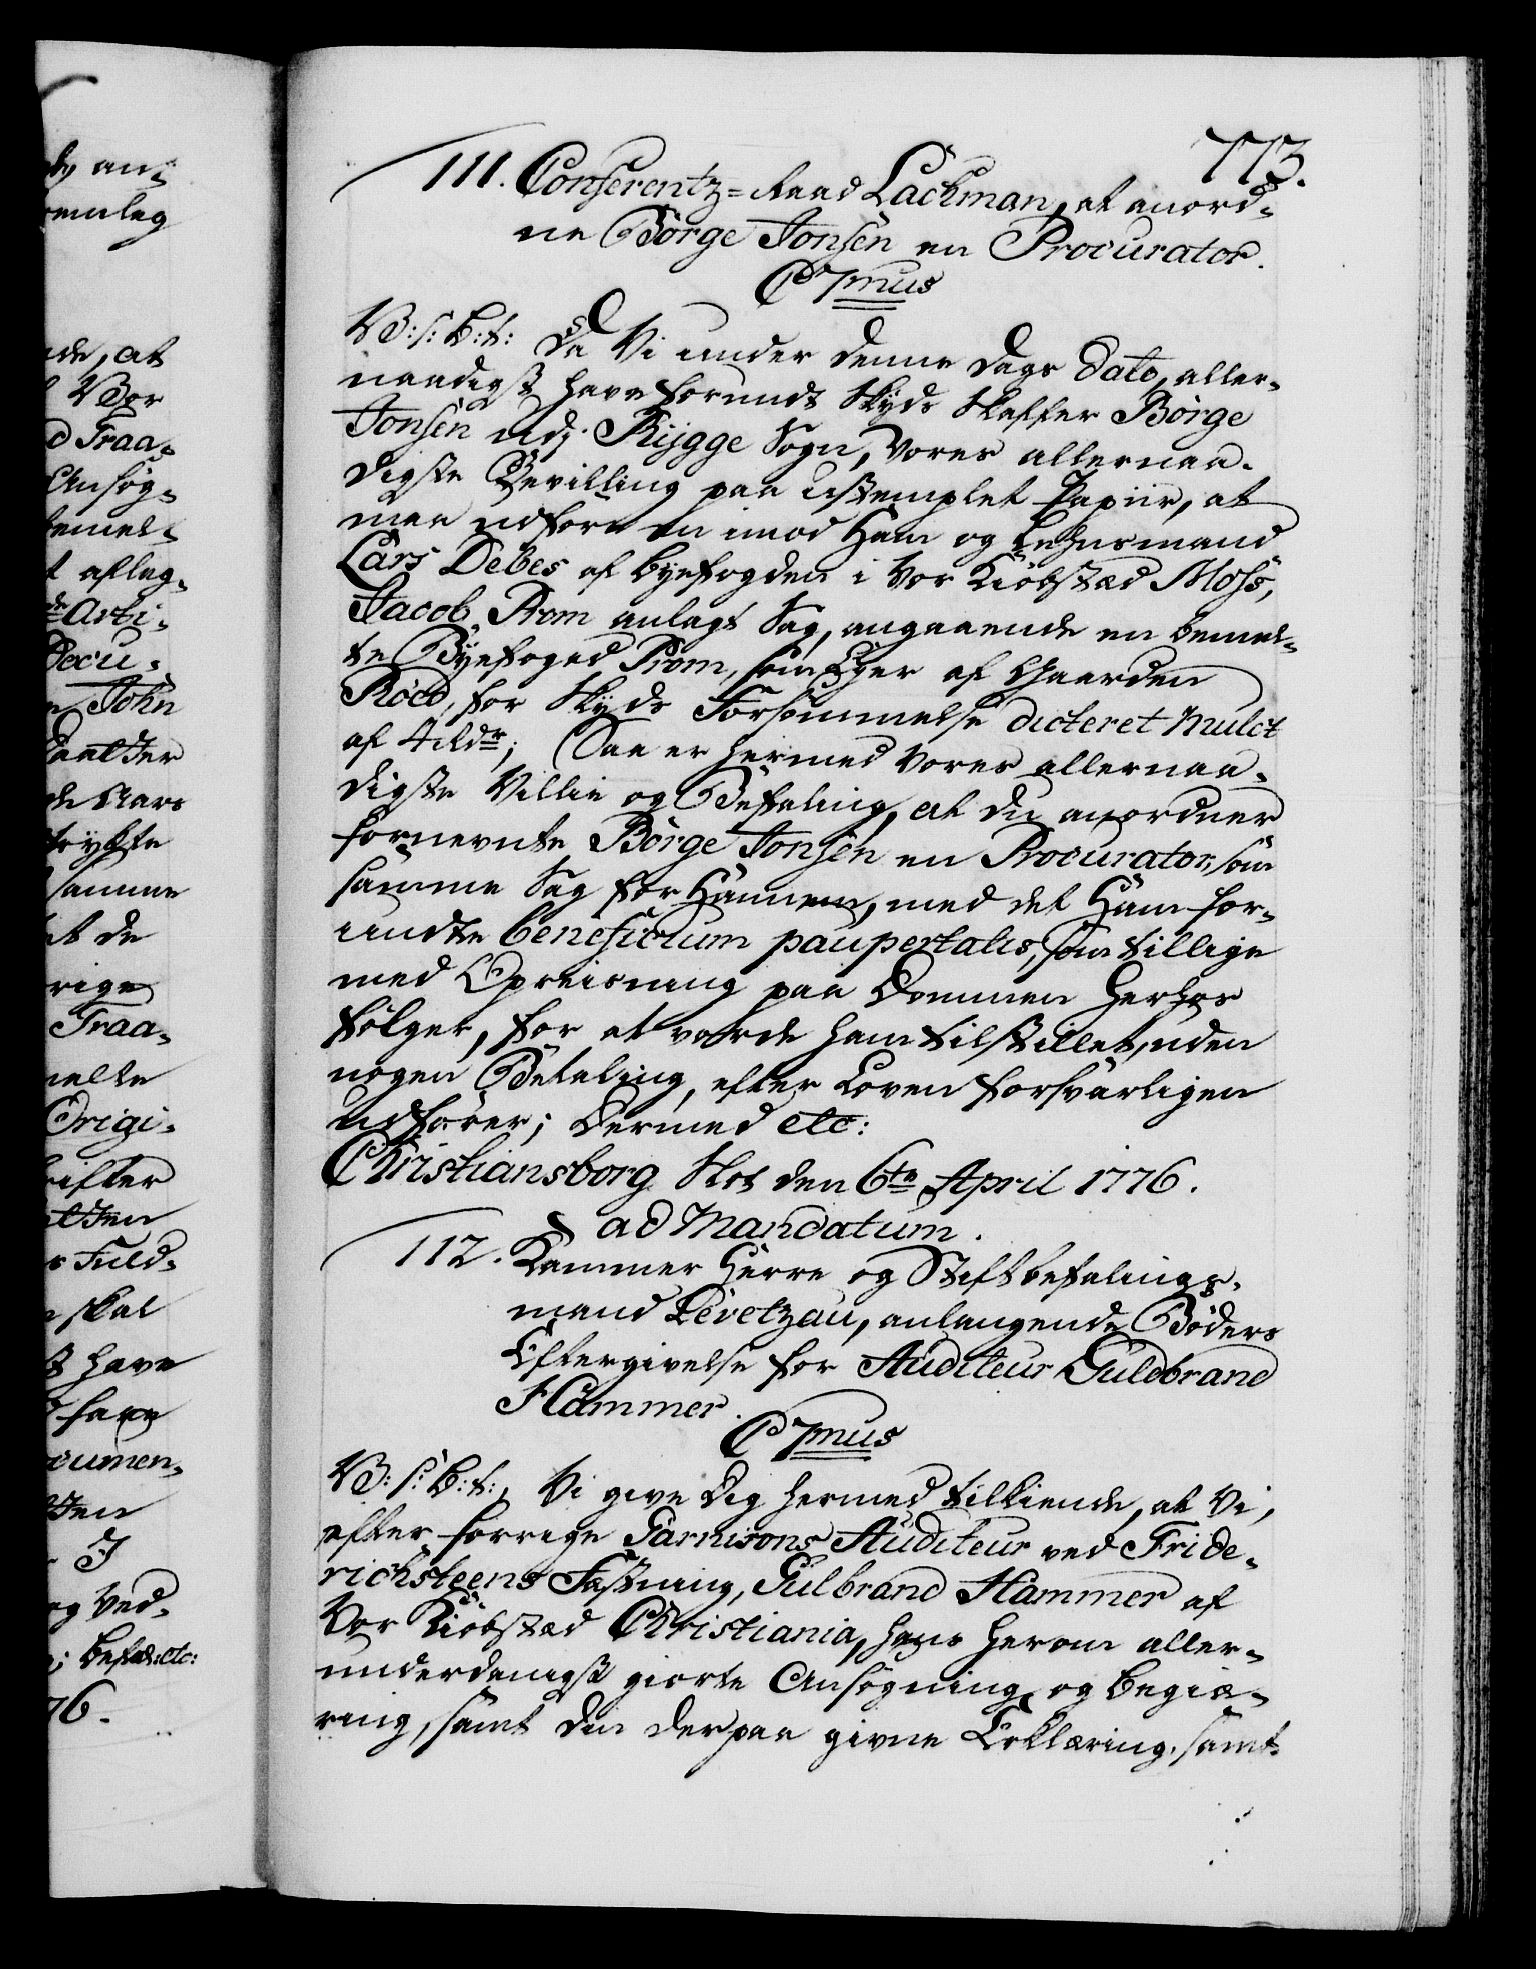 773.
111. Conferentz-Raad Lackman, at anord-
ne Börge Jonsen en Procurator.
C 7mus
V: s: B: t: Da Vi under denne Dags Dato, aller-
naadigst have forundt Skyds Skaffer Börge
Jonsen udj Rygge Sogn, Vores allernaa-
digste Bevilling paa ustemplet Papiir, at
maa udføre en imod Ham og Lehnsmand
Lars Debes af Byefogden i Vor Kiöbstæd Moss,
Jacob Prom anlagt Sag, angaaende en bemel-
te Byefoged Prom, som Eyer af Gaarden
Röed, for Skyds Forsömmelse dicteret Mulct
af 4 Rdr; Saa er hermed Vores allernaa-
digste Villie og Befaling, at du anordner
fornevnte Börge Jonsen en Procurator, som
samme Sag for Hannem, med det Ham for-
undte beneficium paupertatis, som tillige
med Opreisning paa Dommen herhos
fölger, for at vorde ham tilstillet, uden
nogen Betaling, efter Loven forsvarligen
udförer; Dermed etc:
Christiansborg Slot den 6te April 1776.
ad Mandatum.
112. Kammer Herre og Stiftbefalings-
mand Levetzau, anlangende Böders
Eftergivelse for Auditeur Guldbrand
Hammer.
C 7mus
V: s: B: t:, Vi give Dig hermed tilkiende, at Vi,
efter forrige Garnisons Auditeur ved Fride-
richsteens Fæstning, Gulbrand Hammer af
Vor Kiöbstæd Christiania, hans herom aller-
underdanigst giorte Ansögning og Begiæ-
ring, samt din derpaa givne Erklæring, samt